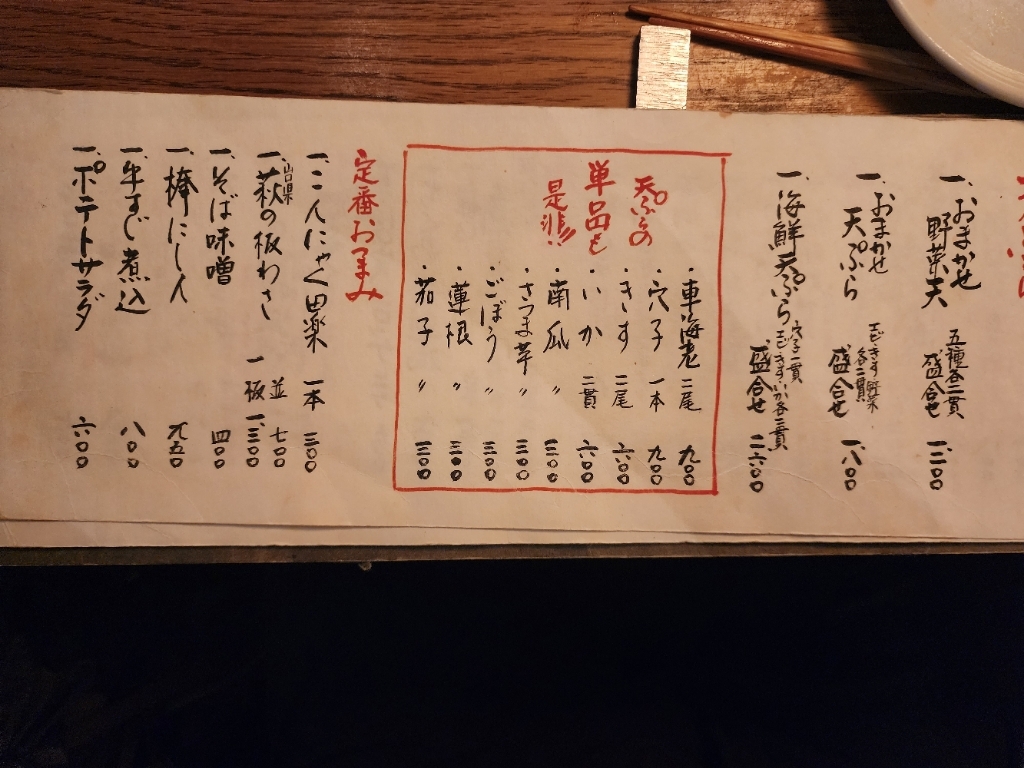 一、おまかせ
野菜天 五種各二貫
盛合せ 一、二〇〇
一、おまかせ
天ぷら えび・きす 野菜
各二貫
盛合せ 一、八〇〇
一、海鮮天ぷら 穴子一貫
えび・きす・いか各二貫
盛合せ 二、六〇〇
天ぷらの
単品も
是非!!
・車海老 二尾 九〇〇
・穴子 一本 九〇〇
・きす 二尾 六〇〇
・いか 二貫 六〇〇
・南瓜 〃 三〇〇
・さつま芋 〃 三〇〇
・ごぼう 〃 三〇〇
・蓮根 〃 三〇〇
・茄子 〃 三〇〇
定番おつまみ
一、こんにゃく田楽 一本 三〇〇
一、山口県 萩の板わさ 並 七〇〇
一板 一、三〇〇
一、そば味噌 四〇〇
一、棒にしん 九五〇
一、牛すじ煮込 八〇〇
一、ポテトサラダ 六〇〇